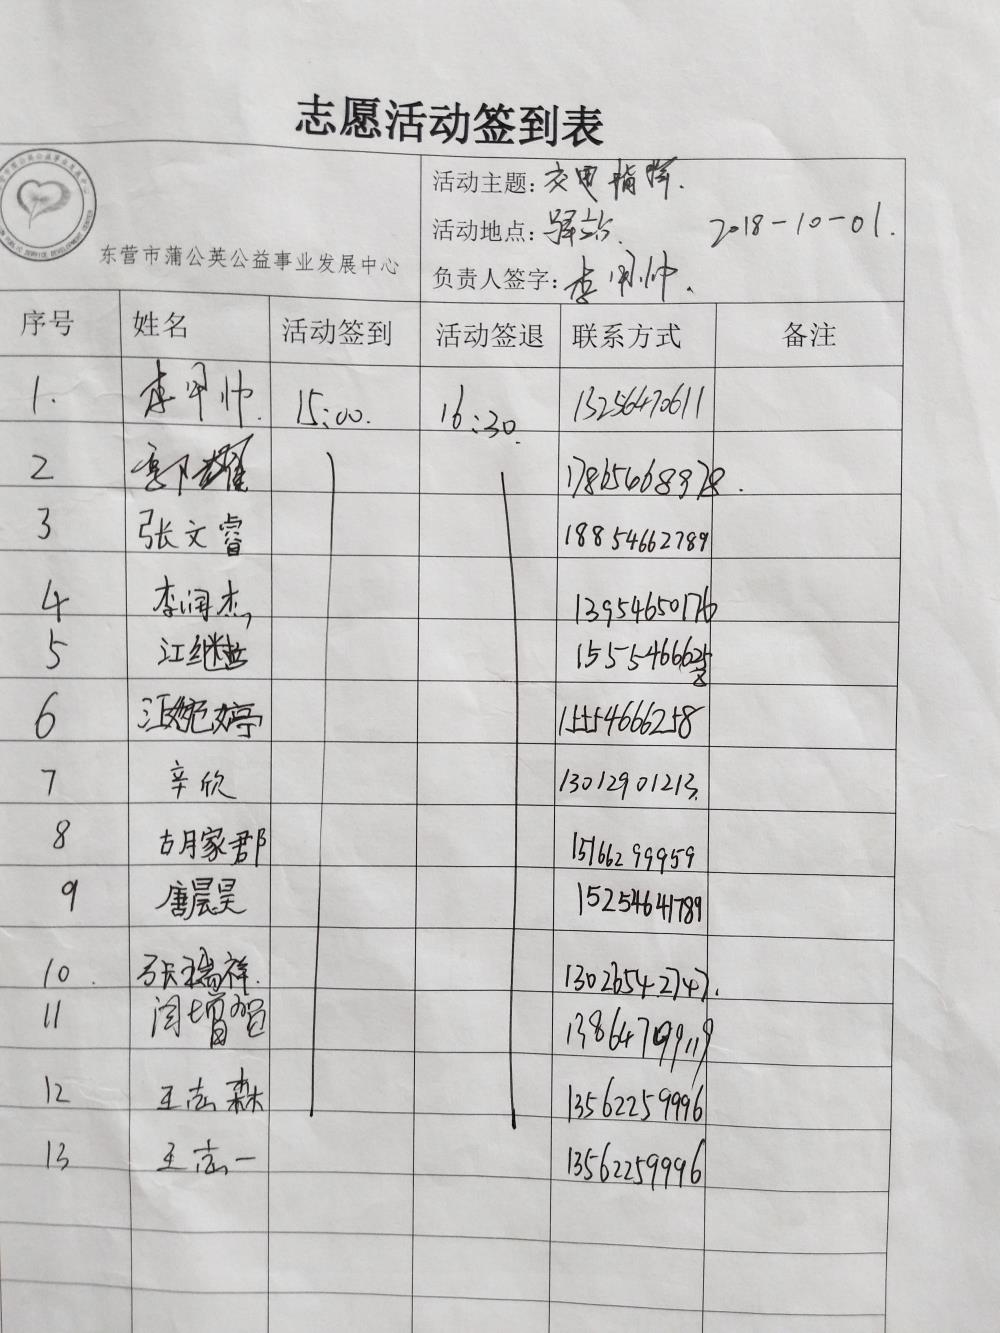 志愿活动签到表
东营市蒲公英公益事业发展中心
活动主题:
活动地点: 驿站. 2018-10-01.
负责人签字: 李
序号 姓名 活动签到 活动签退 联系方式 备注
1. 李 帅. 15:00. 16:30. 13256470611
2 郭耀 17865668978.
3 张文睿 18854662789
4 李润杰 13954650176
5 江继 15554666
6 江婉婷 15554666258
7 辛欣 13012901213.
8 胡家郡 15166299959
9 唐晨昊 15254641789
10. 张瑞祥. 13026542747.
11 闫增贺 1386479
12 王志森 13562259996
13 王志一 13562259996